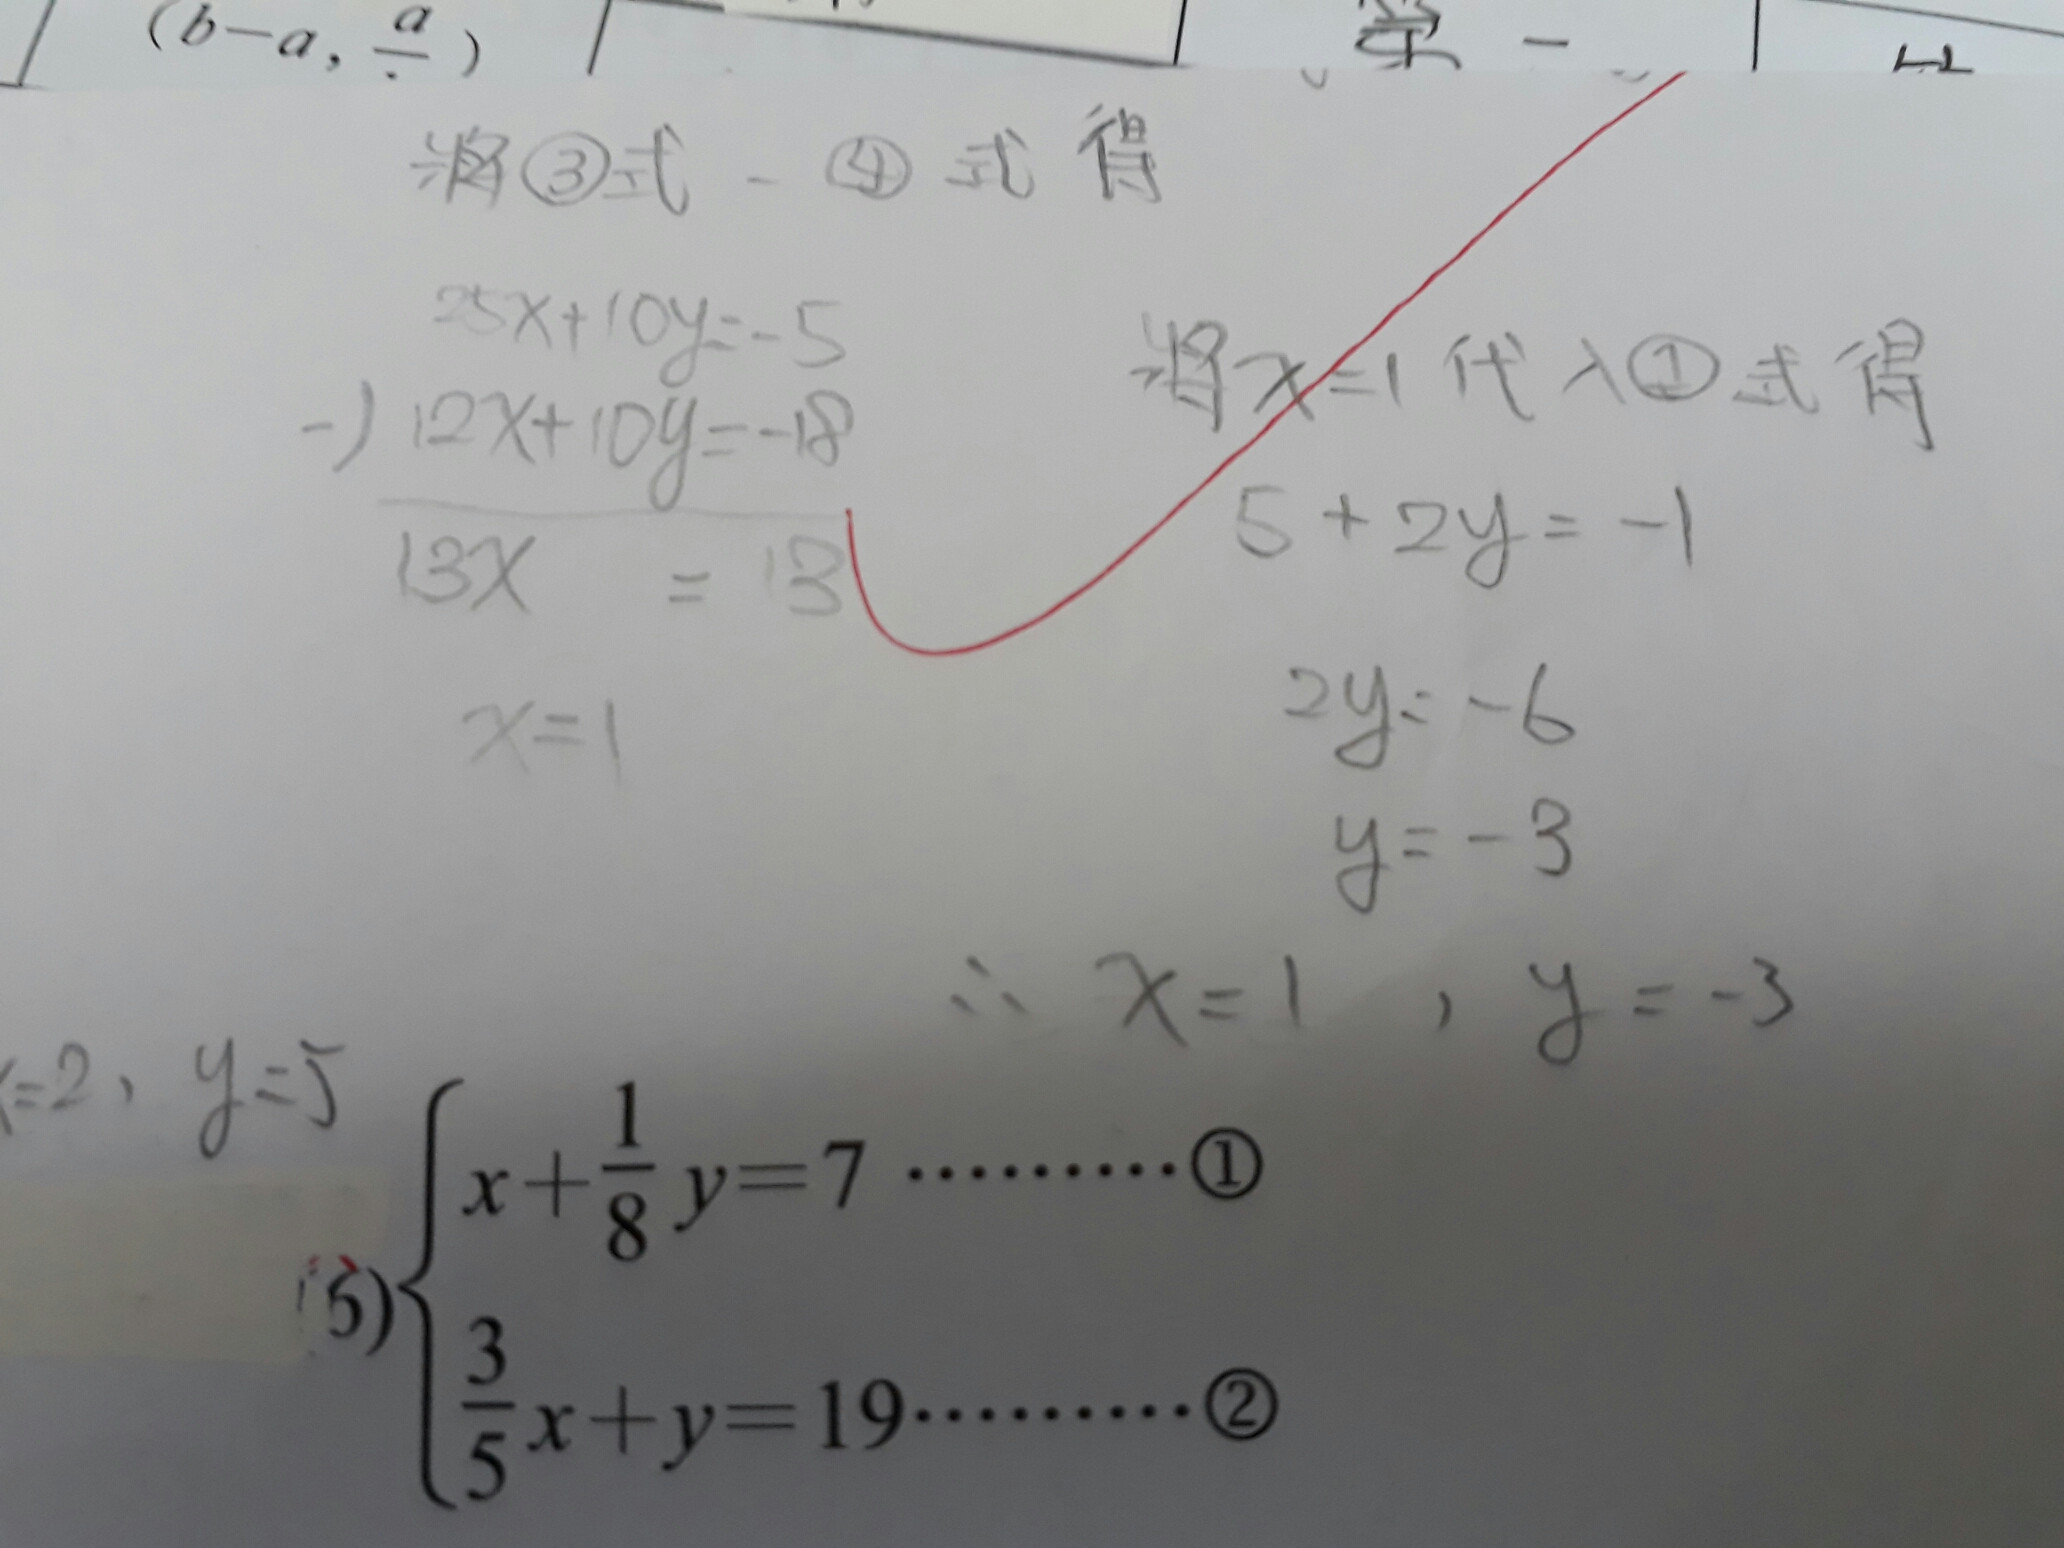 (b−a, a/
學 −
將③式 - ④式得
25x+10y=-5
-) 12x+10y=-18
13x = 13
x=1
將x=1代入①式得
5+2y=-1
2y=-6
y=-3
∴ x=1 , y=-3
x=2, y=5
x+1/8 y=7 ………①
3/5 x+y=19………②